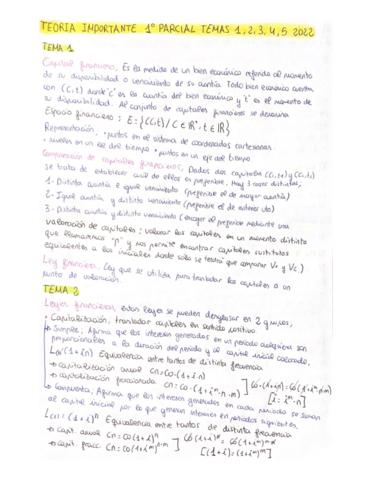 TEORIA IMPORTANTE 1º PARCIAL TEMAS 1, 2, 3, 4, 5 2022
TEMA 1
Capital financiero, Es la medida de un bien económico referida al momento
de su disponibilidad o vencimiento de su cuantía. Todo bien económico cuenta
con (C,t) donde 'c' es la cuantía del bien económico y 't' es el momento de
su disponibilidad. Al conjunto de capitales financieros se denomina
Espacio financiero: E = {(C,t) / C ∈ R⁺, t ∈ R}
Representación, • puntos en el sistema de coordenadas cartesianas
• niveles en un eje del tiempo • puntos en un eje del tiempo
Comparación de capitales financieros, Dados dos capitales
se trata de establecer cuál de ellos es preferible. Hay 3 casos distintos,
1- Distinta cuantía e igual vencimiento (preferible el de mayor cuantía)
2- Igual cuantía y distinto vencimiento (preferible el de menor vto)
3- Distinta cuantía y distinto vencimiento (escoger el preferible mediante una
valoración de capitales: valorar los capitales en un momento distinto
que llamaremos "p" y nos permite encontrar capitales sustitutos
equivalentes a los iniciales donde solo se tendrá que comparar V₁ y V₂)
Ley financiera, Ley que se utiliza para trasladar los capitales a un
punto de valoración.
TEMA 2
Leyes financieras, estas leyes se pueden desglosar en 2 grupos,
• Capitalización, trasladar capitales en sentido positivo
↳ Simple; Afirma que los intereses generados en un periodo cualquiera son
proporcionales a la duración del periodo y al capital inicial colocado.
(1+in) Equivalencia entre tantos de distinta frecuencia
→ capitalización anual Cn = Co·(1+i·n)
→ capitalización fraccionada Cn = Co·(1+iᵐ·n·m)
[i = iᵐ·m]
↳ Compuesta, Afirma que los intereses generados en cada periodo se suman
al capital inicial por lo que generan intereses en periodos siguientes.
(1+i)ⁿ Equivalencia entre tantos de distinta frecuencia
→ capit. anual Cn = Co(1+i)ⁿ
→ capit. fracc Cn = Co(1+iᵐ)ⁿ·ᵐ
[(1+i) = (1+iᵐ)ᵐ]